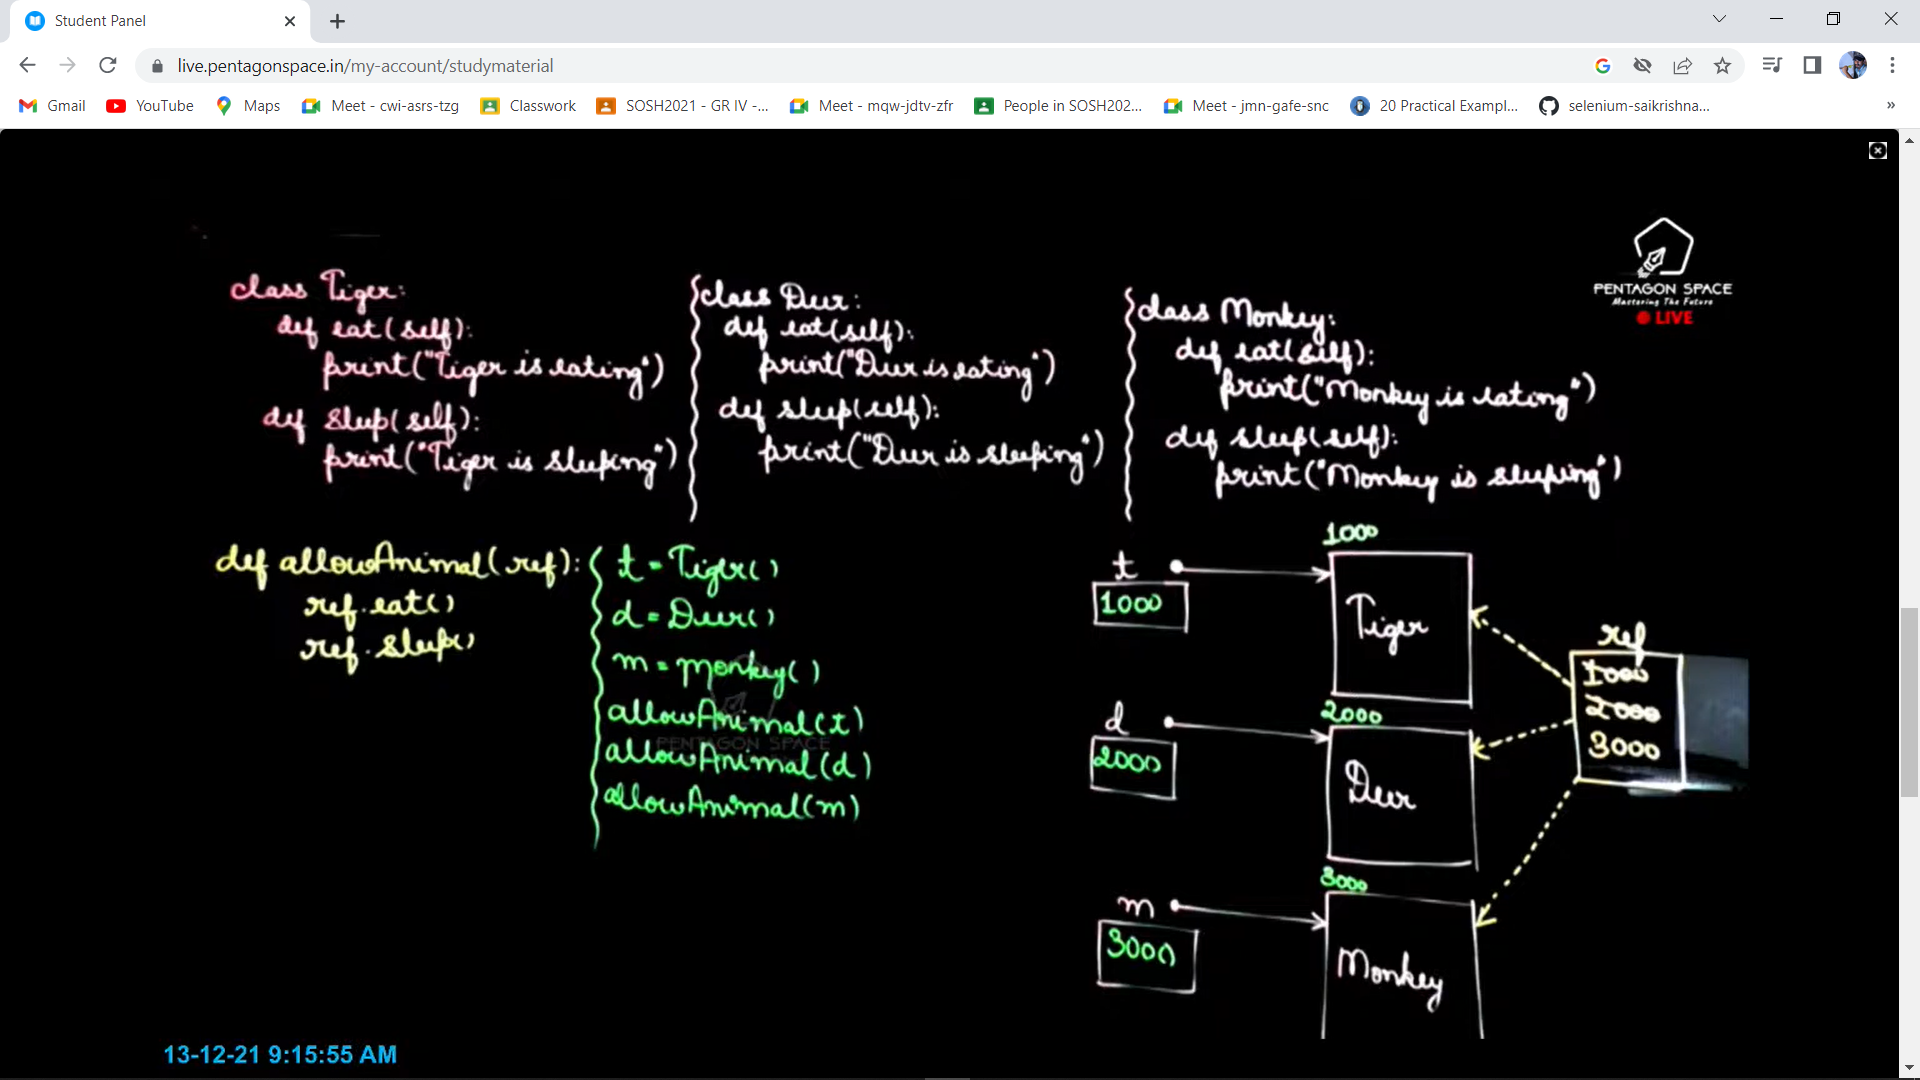 Student Panel
live.pentagonspace.in/my-account/studymaterial
Gmail YouTube Maps Meet - cwi-asrs-tzg Classwork SOSH2021 - GR IV -... Meet - mqw-jdtv-zfr People in SOSH202... Meet - jmn-gafe-snc 20 Practical Exampl... selenium-saikrishna... »
PENTAGON SPACE
Mastering The Future
LIVE
class Tiger:
def eat(self):
print("Tiger is eating")
def sleep(self):
print("Tiger is sleeping")
class Deer:
def eat(self):
print("Deer is eating")
def sleep(self):
print("Deer is sleeping")
class Monkey:
def eat(self):
print("Monkey is eating")
def sleep(self):
print("Monkey is sleeping")
def allowAnimal(ref):
ref.eat()
ref.sleep()
t = Tiger()
d = Deer()
m = Monkey()
allowAnimal(t)
PENTAGON SPACE
allowAnimal(d)
allowAnimal(m)
t
1000
1000
Tiger
d
2000
2000
Deer
m
3000
3000
Monkey
ref
1000
2000
3000
13-12-21 9:15:55 AM